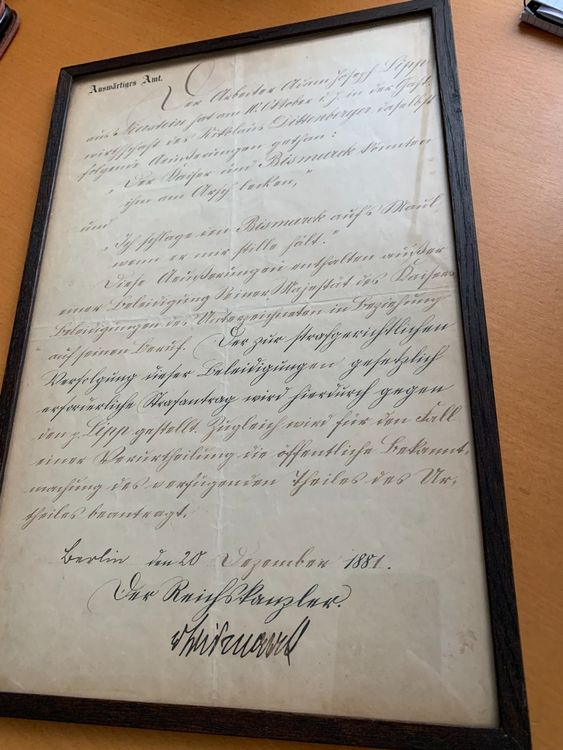 Auswärtiges Amt.
Der Arbeiter Adam Joseph Lipp
aus hat am October d. J. in der Gast-
wirthschaft des Nikolaus Dittenberger daselbst
folgende Aeußerungen gethan:
"Der Kaiser und Bismarck könnten
ihn am Arsch lecken,"
und
"Ich schlage den Bismarck auf's Maul
wenn er mir stille hält."
Diese Aeußerungen enthalten außer
einer Beleidigung Seiner Majestät des Kaisers
Beleidigungen des Unterzeichneten in Beziehung
auf seinen Beruf. Der zur strafgerichtlichen
Verfolgung dieser Beleidigungen gesetzlich
erforderliche Strafantrag wird hierdurch gegen
den p. Lipp gestellt. Zugleich wird für den Fall
einer Verurtheilung die öffentliche Bekannt-
machung des verfügenden Theiles des Ur-
theiles beantragt.
Berlin den 20 Dezember 1881.
Der Reichskanzler.
v Bismarck